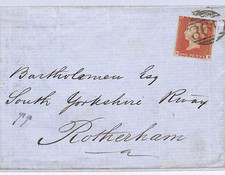 Bartholomew Esq
South Yorkshire Rway
Rotherham